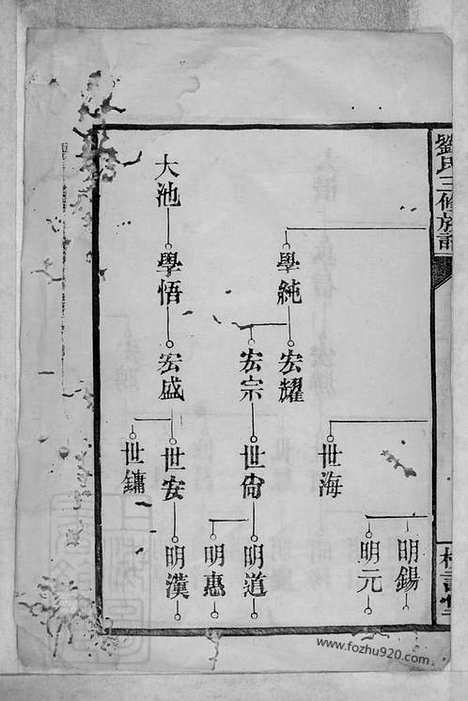 劉氏三修族譜
明錫
明元
世海
學純
宏耀
宏宗
世尙
明道
明惠
大池
學悟
宏盛
世安
明漢
世鏞
www.fozhu920.com